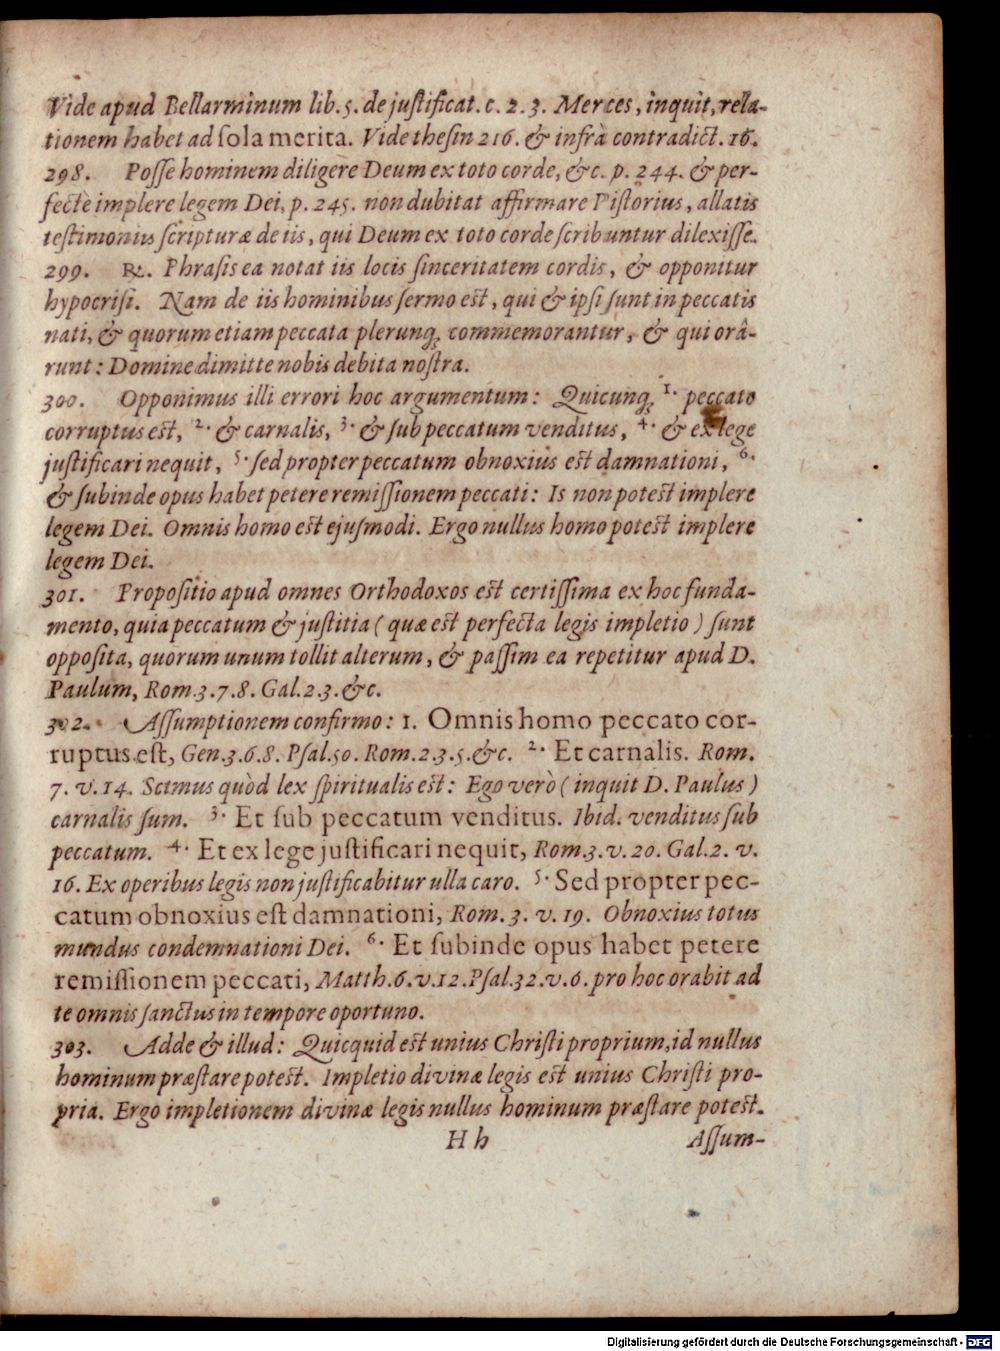 Vide apud Bellarminum lib. 5. de justificat. c. 2. 3. Merces, inquit, rela-
tionem habet ad sola merita. Vide thesin 216. & infrà contradict. 16.
298. Posse hominem diligere Deum ex toto corde, &c. p. 244. & per-
fectè implere legem Dei, p. 245. non dubitat affirmare Pistorius, allatis
testimoniis scripturæ de iis, qui Deum ex toto corde scribuntur dilexisse.
299. ℞. Phrasis ea notat iis locis sinceritatem cordis, & opponitur
hypocrisi. Nam de iis hominibus sermo est, qui & ipsi sunt in peccatis
nati, & quorum etiam peccata plerunq; commemorantur, & qui orâ-
runt: Domine dimitte nobis debita nostra.
300. Opponimus illi errori hoc argumentum: Quicunq; 1. peccato
corruptus est, 2. & carnalis, 3. & sub peccatum venditus, 4. & ex lege
justificari nequit, 5. sed propter peccatum obnoxius est damnationi, 6.
& subinde opus habet petere remissionem peccati: Is non potest implere
legem Dei. Omnis homo est ejusmodi. Ergo nullus homo potest implere
legem Dei.
301. Propositio apud omnes Orthodoxos est certissima ex hoc funda-
mento, quia peccatum & justitia (quæ est perfecta legis impletio) sunt
opposita, quorum unum tollit alterum, & passim ea repetitur apud D.
Paulum, Rom. 3. 7. 8. Gal. 2. 3. &c.
302. Assumptionem confirmo: 1. Omnis homo peccato cor-
ruptus est, Gen. 3. 6. 8. Psal. 50. Rom. 2. 3. 5. &c. 2. Et carnalis. Rom.
7. v. 14. Scimus quòd lex spiritualis est: Ego verò (inquit D. Paulus)
carnalis sum. 3. Et sub peccatum venditus. Ibid. venditus sub
peccatum. 4. Et ex lege justificari nequit, Rom. 3. v. 20. Gal. 2. v.
16. Ex operibus legis non justificabitur ulla caro. 5. Sed propter pec-
catum obnoxius est damnationi, Rom. 3. v. 19. Obnoxius totus
mundus condemnationi Dei. 6. Et subinde opus habet petere
remissionem peccati, Matth. 6. v. 12. Psal. 32. v. 6. pro hoc orabit ad
te omnis sanctus in tempore oportuno.
303. Adde & illud: Quicquid est unius Christi proprium, id nullus
hominum præstare potest. Impletio divinæ legis est unius Christi pro-
pria. Ergo impletionem divinæ legis nullus hominum præstare potest.
H h Assum-
Digitalisierung gefördert durch die Deutsche Forschungsgemeinschaft - DFG